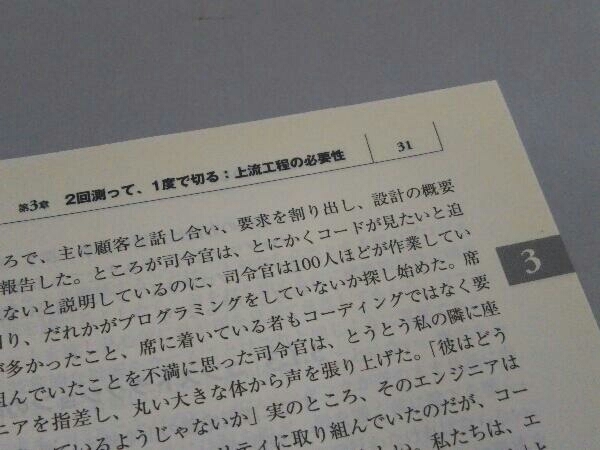 第3章 2回測って、1度で切る：上流工程の必要性 31
3
ろで、主に顧客と話し合い、要求を割り出し、設計の概要
報告した。ところが司令官は、とにかくコードが見たいと迫
ないと説明しているのに、司令官は100人ほどが作業してい
り、だれかがプログラミングをしていないか探し始めた。席
が多かったこと、席に着いている者もコーディングではなく要
組んでいたことを不満に思った司令官は、とうとう私の隣に座
ニアを指差し、丸い大きな体から声を張り上げた。「彼はどう
ているようじゃないか」実のところ、そのエンジニアは
リティに取り組んでいたのだが、コー
私たちは、エ